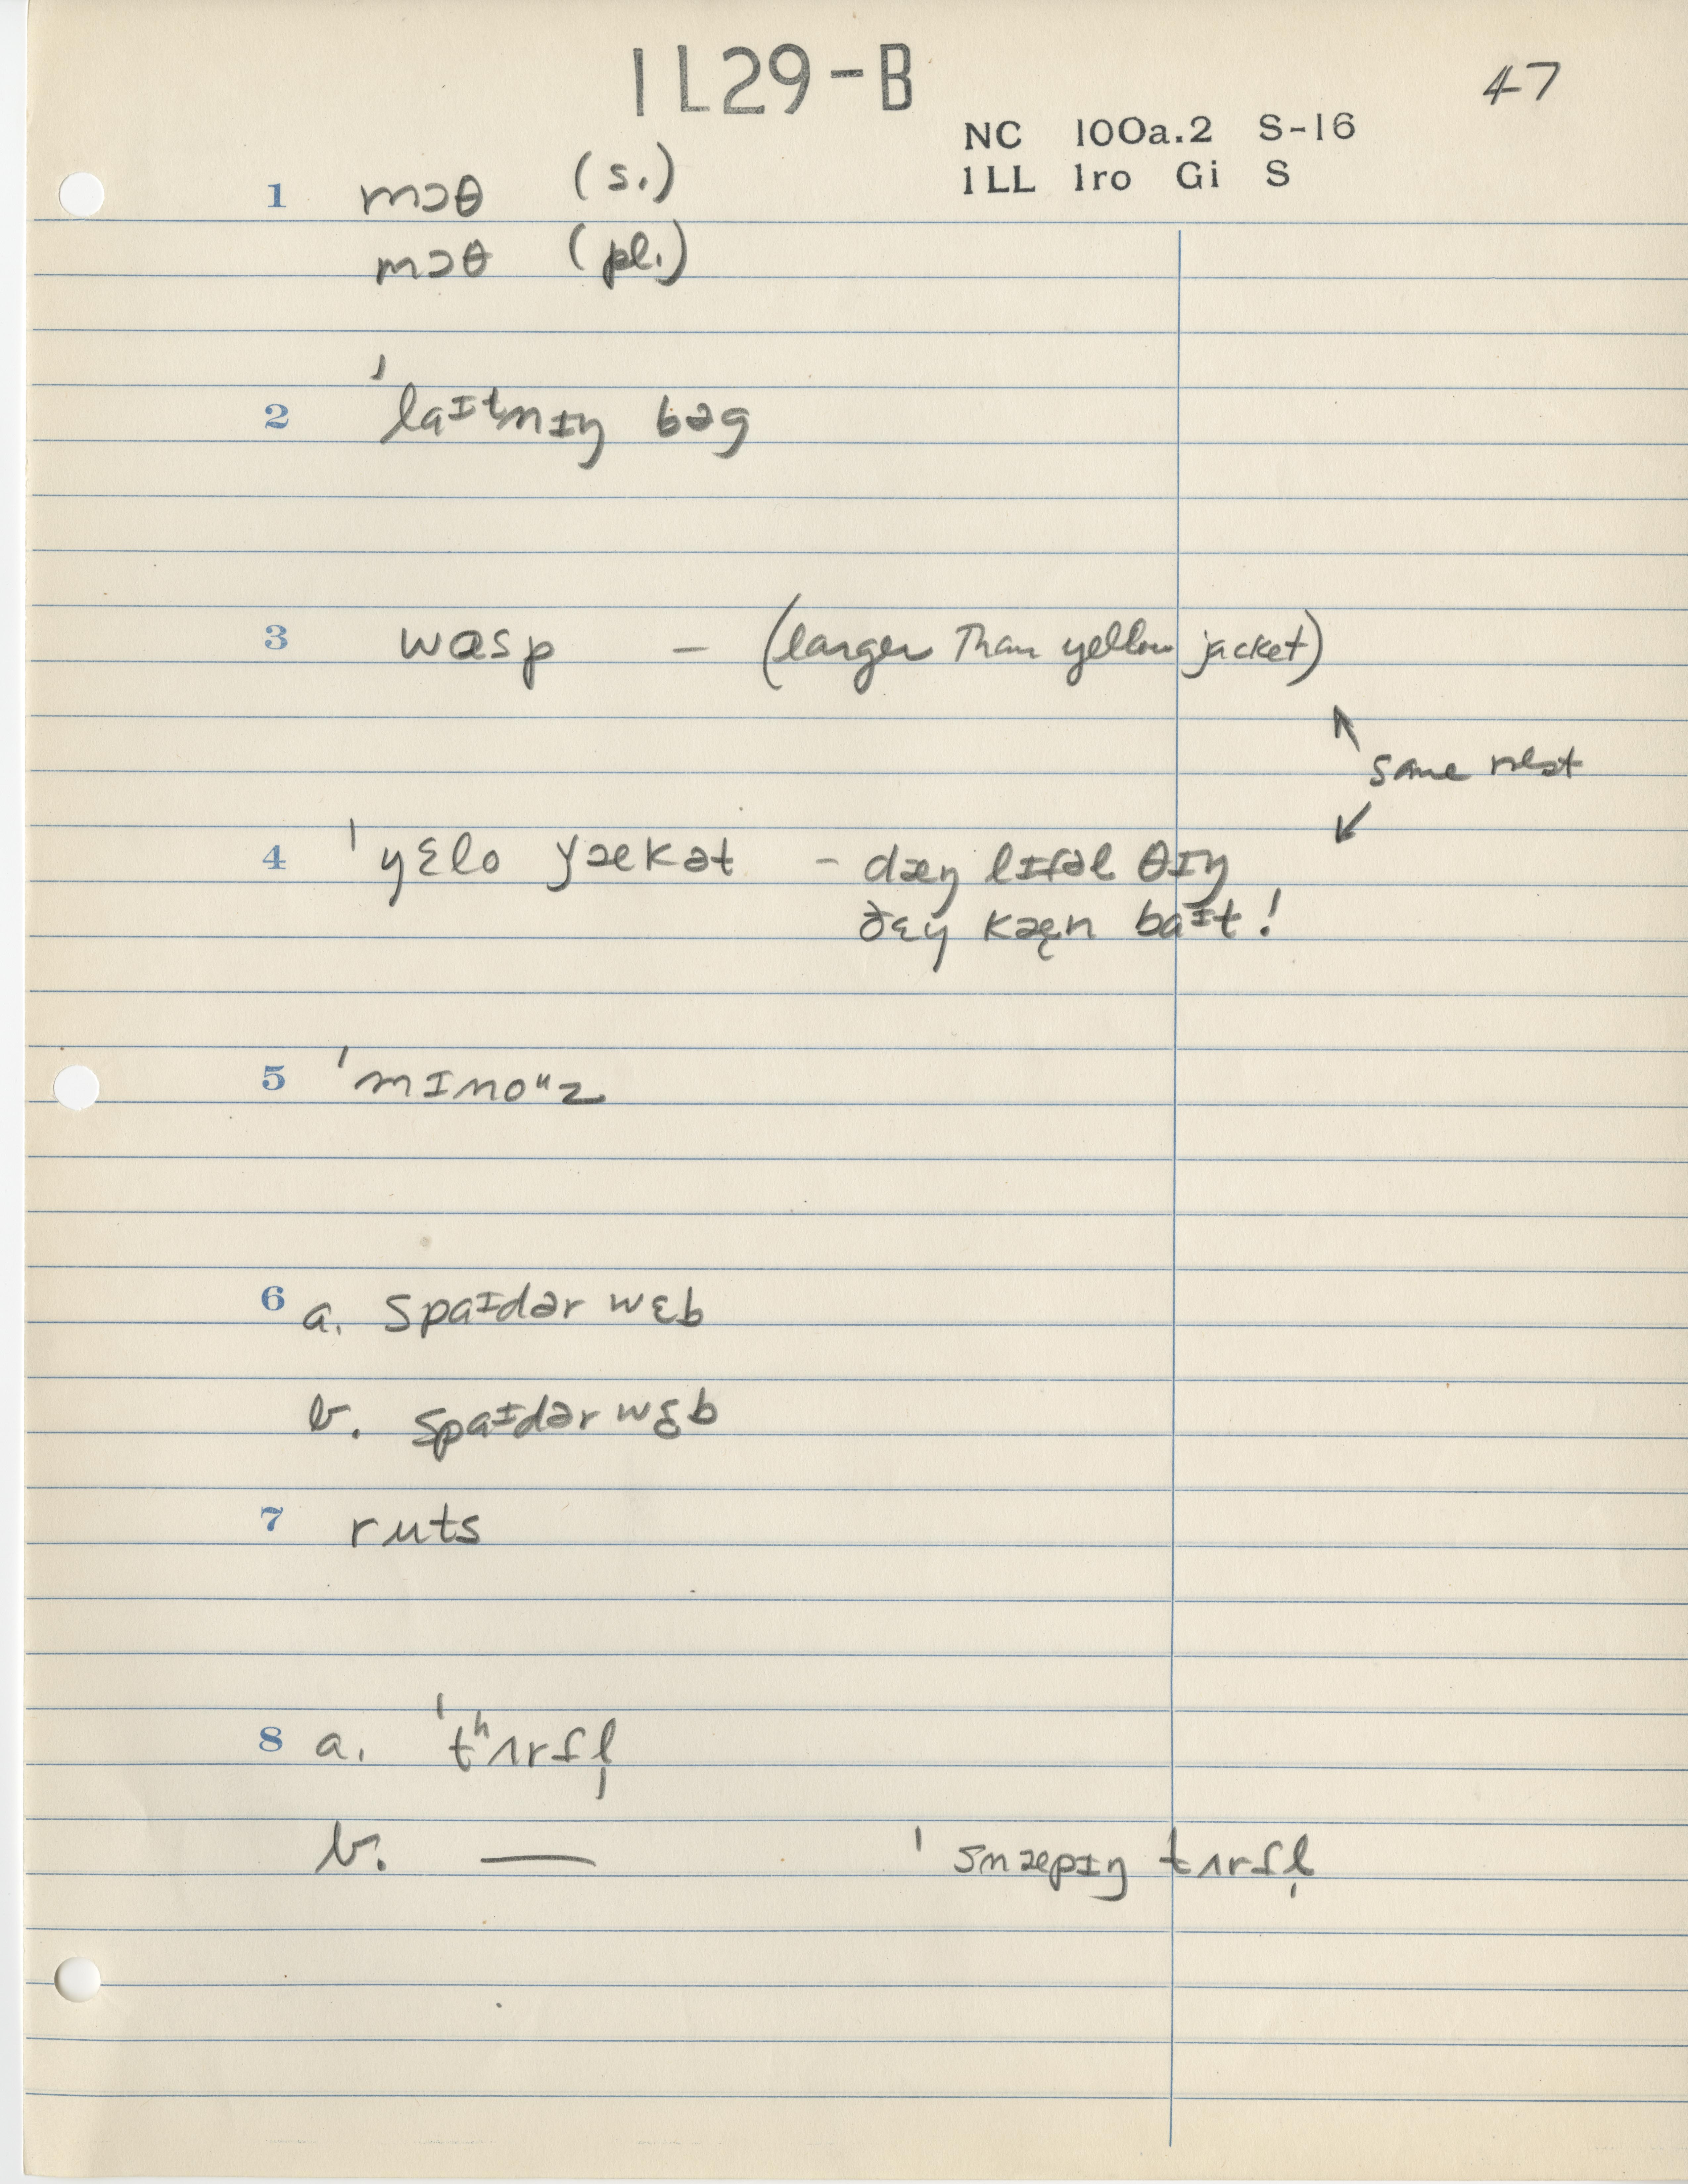 1L29-B
47
NC 100a.2 S-16
1LL 1ro Gi S
1 mɔθ (s.)
mɔθ (pl.)
2 ˈlaᶦtnɪŋ bəg
3 wɑsp – (larger Than yellow jacket)
same nest
4 ˈyɛlo ǰækət – dæŋ lɪɾəl θɪŋ
ðɛy kæ̨n baᶦt!
5 ˈmɪnoᵘz
6 a. spaᶦdər wɛb
b. spaᶦdər wɛb
7 ruts
8 a. ˈtʰʌrɾl̩
b. — ˈsnæpɪŋ tʌrɾl̩